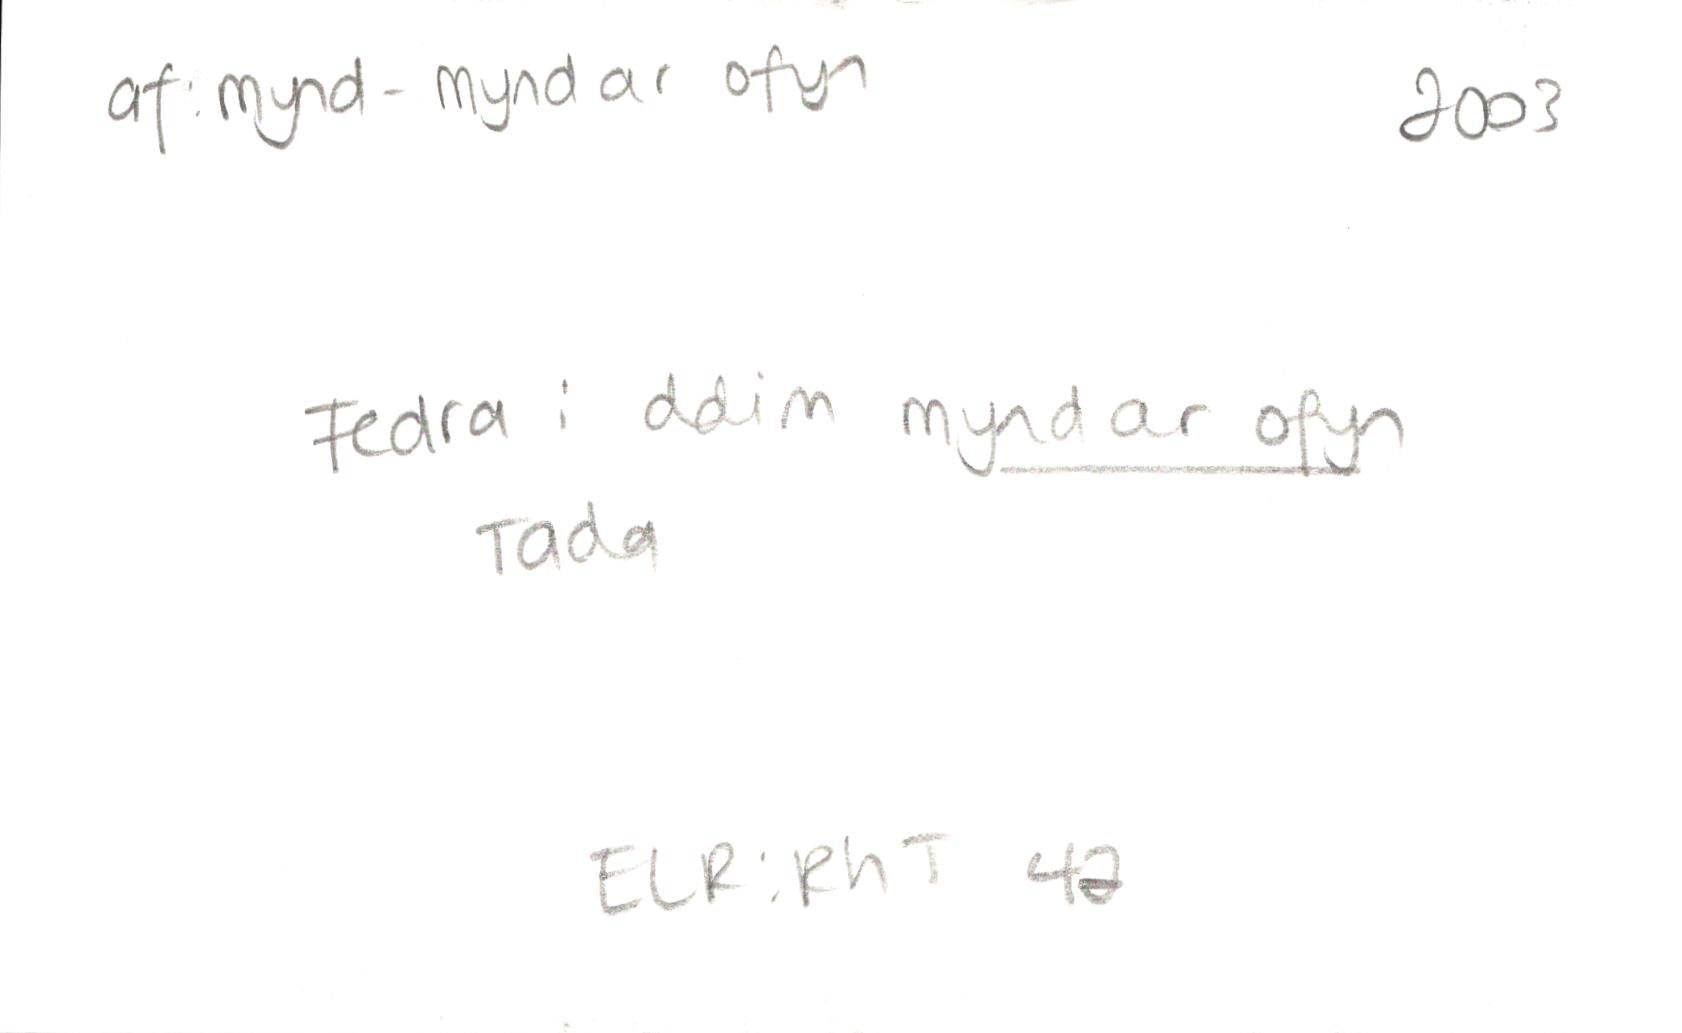 af: mynd - mynd ar ofyn 2003
Fedra i ddim mynd ar ofyn
Tada
ELR: RhT 42